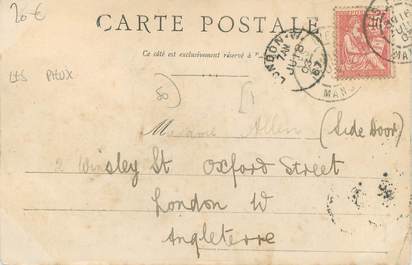 20€
CARTE POSTALE
Ce côté est exclusivement réservé à l'
LES PIEUX
LONDON. W.
7 AM
JU 18
03
87
MAN
50
Madame Allen (Side Door)
2 Winsley St Oxford Street
London W
Angleterre